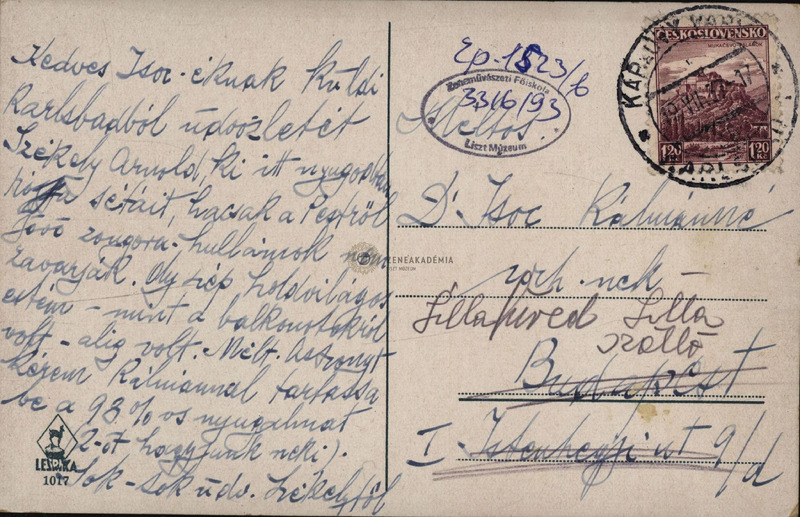 Kedves Isoc-éknak küldi
Karlsbadból üdvözletét
Székely Arnold, ki itt nyugodtan
rója sétáit, hacsak a Pestről
jövő zongora-hullámok nem
zavarják. Oly szép holdvilágos
estém - mint a balkonotokról
volt - alig volt. Mélt. Asszonyt
kérem Kálmánnal tartassa
be a 93%os nyugalmat
(2-öt hagyjunk neki).
Sok-sok üdv. Székelytől
LESTYKA
1017
Ep-1523/6
Zeneművészeti Főiskola
3316/93
Liszt Múzeum
Méltós.
Dr Isoc Kálmánné
úrh.nek
Lillafüred Lilla
szálló
Budapest
I. Istenhegyi út 9/d
ČESKOSLOVENSKO
1.20 Kč
1.20 Kč
KARLOVY VARY
ZENEAKADÉMIA
LISZT MÚZEUM